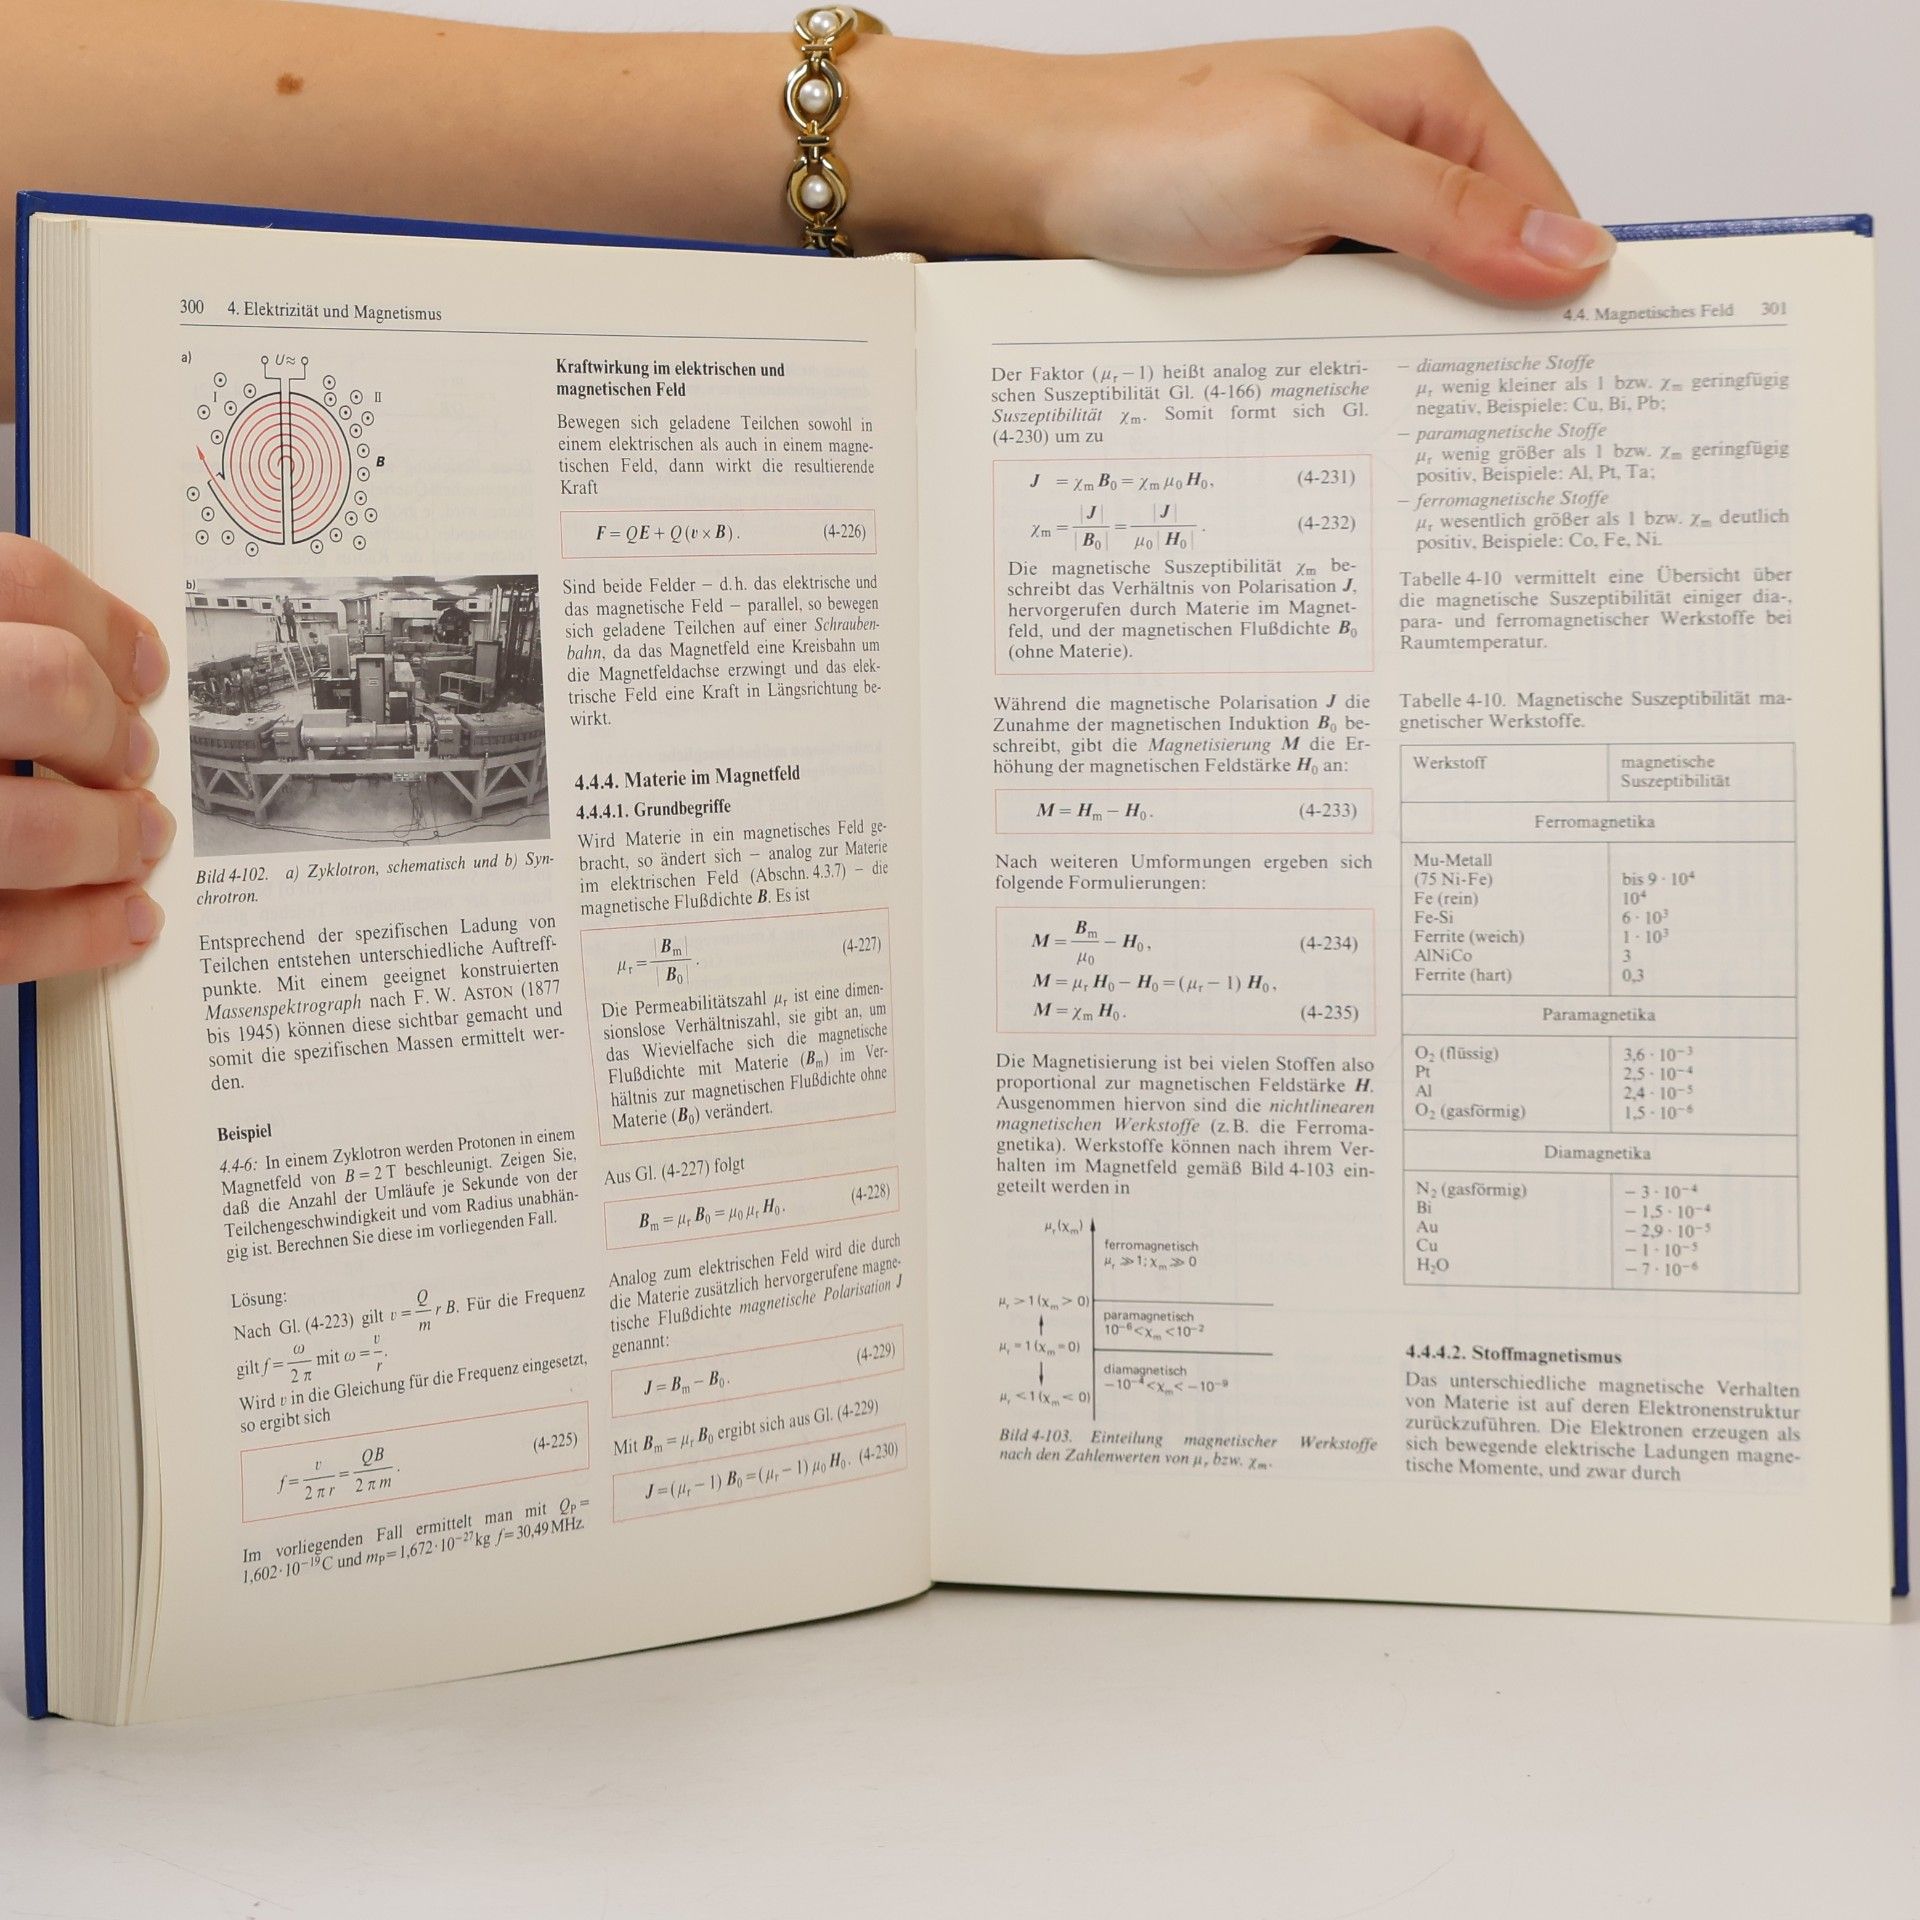 300 4. Elektrizität und Magnetismus
a)
U≈
I
II
B
b)
Bild 4-102. a) Zyklotron, schematisch und b) Syn-
chrotron.
Entsprechend der spezifischen Ladung von
Teilchen entstehen unterschiedliche Auftreff-
punkte. Mit einem geeignet konstruierten
Massenspektrograph nach F. W. ASTON (1877
bis 1945) können diese sichtbar gemacht und
somit die spezifischen Massen ermittelt wer-
den.
Beispiel
4.4-6: In einem Zyklotron werden Protonen in einem
Magnetfeld von B = 2 T beschleunigt. Zeigen Sie,
daß die Anzahl der Umläufe je Sekunde von der
Teilchengeschwindigkeit und vom Radius unabhän-
gig ist. Berechnen Sie diese im vorliegenden Fall.
Lösung:
Nach Gl. (4-223) gilt v = Q/m r B. Für die Frequenz
gilt f = ω/2 π mit ω = v/r.
Wird v in die Gleichung für die Frequenz eingesetzt,
so ergibt sich
f = v/2 π r = QB/2 π m. (4-225)
Im vorliegenden Fall ermittelt man mit Qₚ =
1,602·10⁻¹⁹ C und mₚ = 1,672·10⁻²⁷ kg f = 30,49 MHz.
Kraftwirkung im elektrischen und
magnetischen Feld
Bewegen sich geladene Teilchen sowohl in
einem elektrischen als auch in einem magne-
tischen Feld, dann wirkt die resultierende
Kraft
F = QE + Q (v × B). (4-226)
Sind beide Felder – d.h. das elektrische und
das magnetische Feld – parallel, so bewegen
sich geladene Teilchen auf einer Schrauben-
bahn, da das Magnetfeld eine Kreisbahn um
die Magnetfeldachse erzwingt und das elek-
trische Feld eine Kraft in Längsrichtung be-
wirkt.
4.4.4. Materie im Magnetfeld
4.4.4.1. Grundbegriffe
Wird Materie in ein magnetisches Feld ge-
bracht, so ändert sich – analog zur Materie
im elektrischen Feld (Abschn. 4.3.7) – die
magnetische Flußdichte B. Es ist
μr = |Bm|/|B0|. (4-227)
Die Permeabilitätszahl μr ist eine dimen-
sionslose Verhältniszahl, sie gibt an, um
das Wievielfache sich die magnetische
Flußdichte mit Materie (Bm) im Ver-
hältnis zur magnetischen Flußdichte ohne
Materie (B0) verändert.
Aus Gl. (4-227) folgt
Bm = μr B0 = μ0 μr H0. (4-228)
Analog zum elektrischen Feld wird die durch
die Materie zusätzlich hervorgerufene magne-
tische Flußdichte magnetische Polarisation J
genannt:
J = Bm − B0. (4-229)
Mit Bm = μr B0 ergibt sich aus Gl. (4-229)
J = (μr − 1) B0 = (μr − 1) μ0 H0. (4-230)
4.4. Magnetisches Feld 301
Der Faktor (μr − 1) heißt analog zur elektri-
schen Suszeptibilität Gl. (4-166) magnetische
Suszeptibilität χm. Somit formt sich Gl.
(4-230) um zu
J = χm B0 = χm μ0 H0, (4-231)
χm = |J|/|B0| = |J|/μ0|H0|. (4-232)
Die magnetische Suszeptibilität χm be-
schreibt das Verhältnis von Polarisation J,
hervorgerufen durch Materie im Magnet-
feld, und der magnetischen Flußdichte B0
(ohne Materie).
Während die magnetische Polarisation J die
Zunahme der magnetischen Induktion B0 be-
schreibt, gibt die Magnetisierung M die Er-
höhung der magnetischen Feldstärke H0 an:
M = Hm − H0. (4-233)
Nach weiteren Umformungen ergeben sich
folgende Formulierungen:
M = Bm/μ0 − H0, (4-234)
M = μr H0 − H0 = (μr − 1) H0,
M = χm H0. (4-235)
Die Magnetisierung ist bei vielen Stoffen also
proportional zur magnetischen Feldstärke H.
Ausgenommen hiervon sind die nichtlinearen
magnetischen Werkstoffe (z.B. die Ferroma-
gnetika). Werkstoffe können nach ihrem Ver-
halten im Magnetfeld gemäß Bild 4-103 ein-
geteilt werden in
μr (χm)
ferromagnetisch
μr ≫ 1; χm ≫ 0
μr > 1 (χm > 0)
paramagnetisch
10⁻⁶ < χm < 10⁻²
μr = 1 (χm = 0)
diamagnetisch
−10⁻⁴ < χm < −10⁻⁹
μr < 1 (χm < 0)
Bild 4-103. Einteilung magnetischer Werkstoffe
nach den Zahlenwerten von μr bzw. χm.
– diamagnetische Stoffe
μr wenig kleiner als 1 bzw. χm geringfügig
negativ, Beispiele: Cu, Bi, Pb;
– paramagnetische Stoffe
μr wenig größer als 1 bzw. χm geringfügig
positiv, Beispiele: Al, Pt, Ta;
– ferromagnetische Stoffe
μr wesentlich größer als 1 bzw. χm deutlich
positiv, Beispiele: Co, Fe, Ni.
Tabelle 4-10 vermittelt eine Übersicht über
die magnetische Suszeptibilität einiger dia-,
para- und ferromagnetischer Werkstoffe bei
Raumtemperatur.
Tabelle 4-10. Magnetische Suszeptibilität ma-
gnetischer Werkstoffe.
Werkstoff magnetische
Suszeptibilität
Ferromagnetika
Mu-Metall
(75 Ni-Fe) bis 9 · 10⁴
Fe (rein) 10⁴
Fe-Si 6 · 10³
Ferrite (weich) 1 · 10³
AlNiCo 3
Ferrite (hart) 0,3
Paramagnetika
O₂ (flüssig) 3,6 · 10⁻³
Pt 2,5 · 10⁻⁴
Al 2,4 · 10⁻⁵
O₂ (gasförmig) 1,5 · 10⁻⁶
Diamagnetika
N₂ (gasförmig) − 3 · 10⁻⁴
Bi − 1,5 · 10⁻⁴
Au − 2,9 · 10⁻⁵
Cu − 1 · 10⁻⁵
H₂O − 7 · 10⁻⁶
4.4.4.2. Stoffmagnetismus
Das unterschiedliche magnetische Verhalten
von Materie ist auf deren Elektronenstruktur
zurückzuführen. Die Elektronen erzeugen als
sich bewegende elektrische Ladungen magne-
tische Momente, und zwar durch